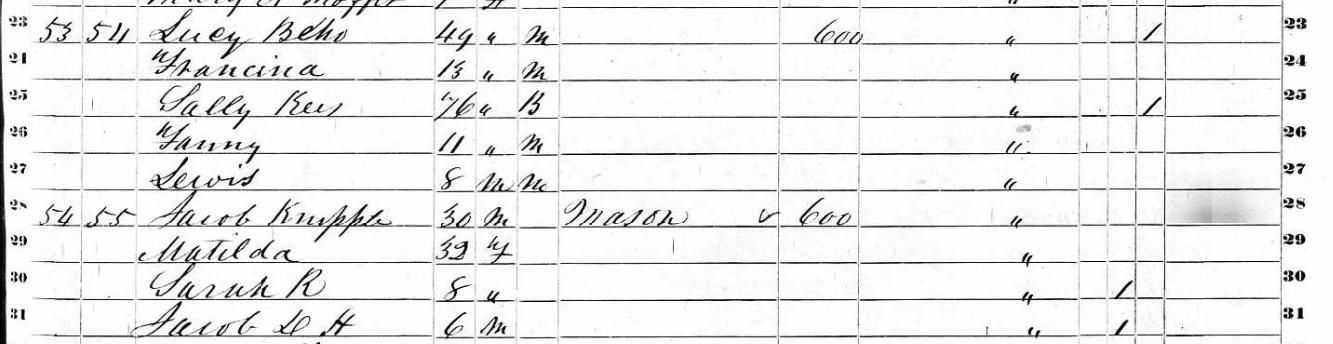 23 53 54 Lucy Beho 49 " M 600 " 1 23
24 Francina 13 " M " 24
25 Sally Kees 76 " B " 1 25
26 Fanny 11 " M " 26
27 Lewis 8 M M " 27
28 54 55 Jacob Knipple 30 M Mason v 600 " 28
29 Matilda 32 F " 29
30 Sarah R 8 " " 1 30
31 Jacob D H 6 M " 1 31